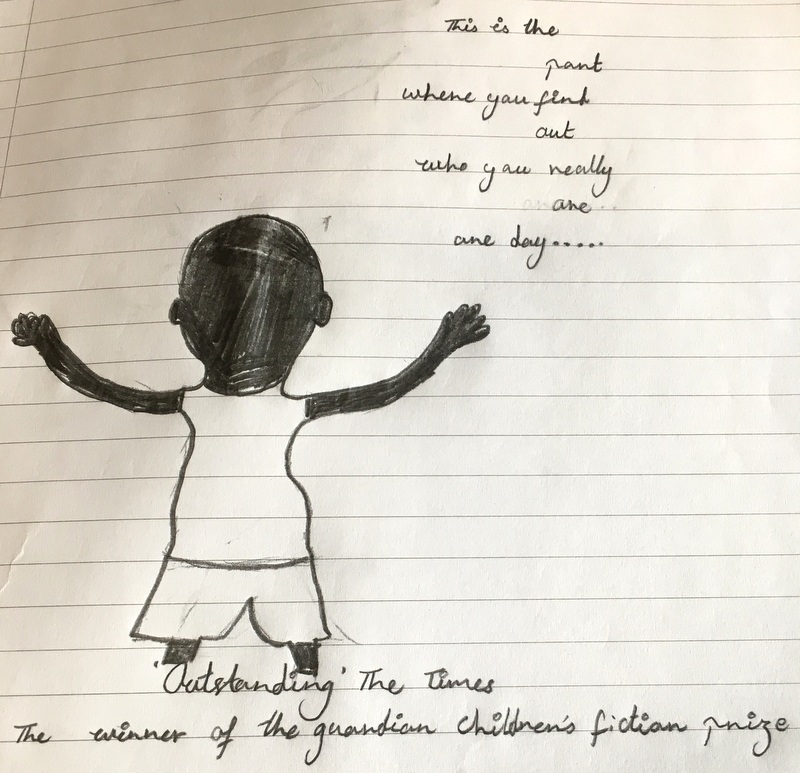 This is the
part
where you find
out
who you really
are
one day.....
'Outstanding' The Times
The winner of the guardian children's fiction prize